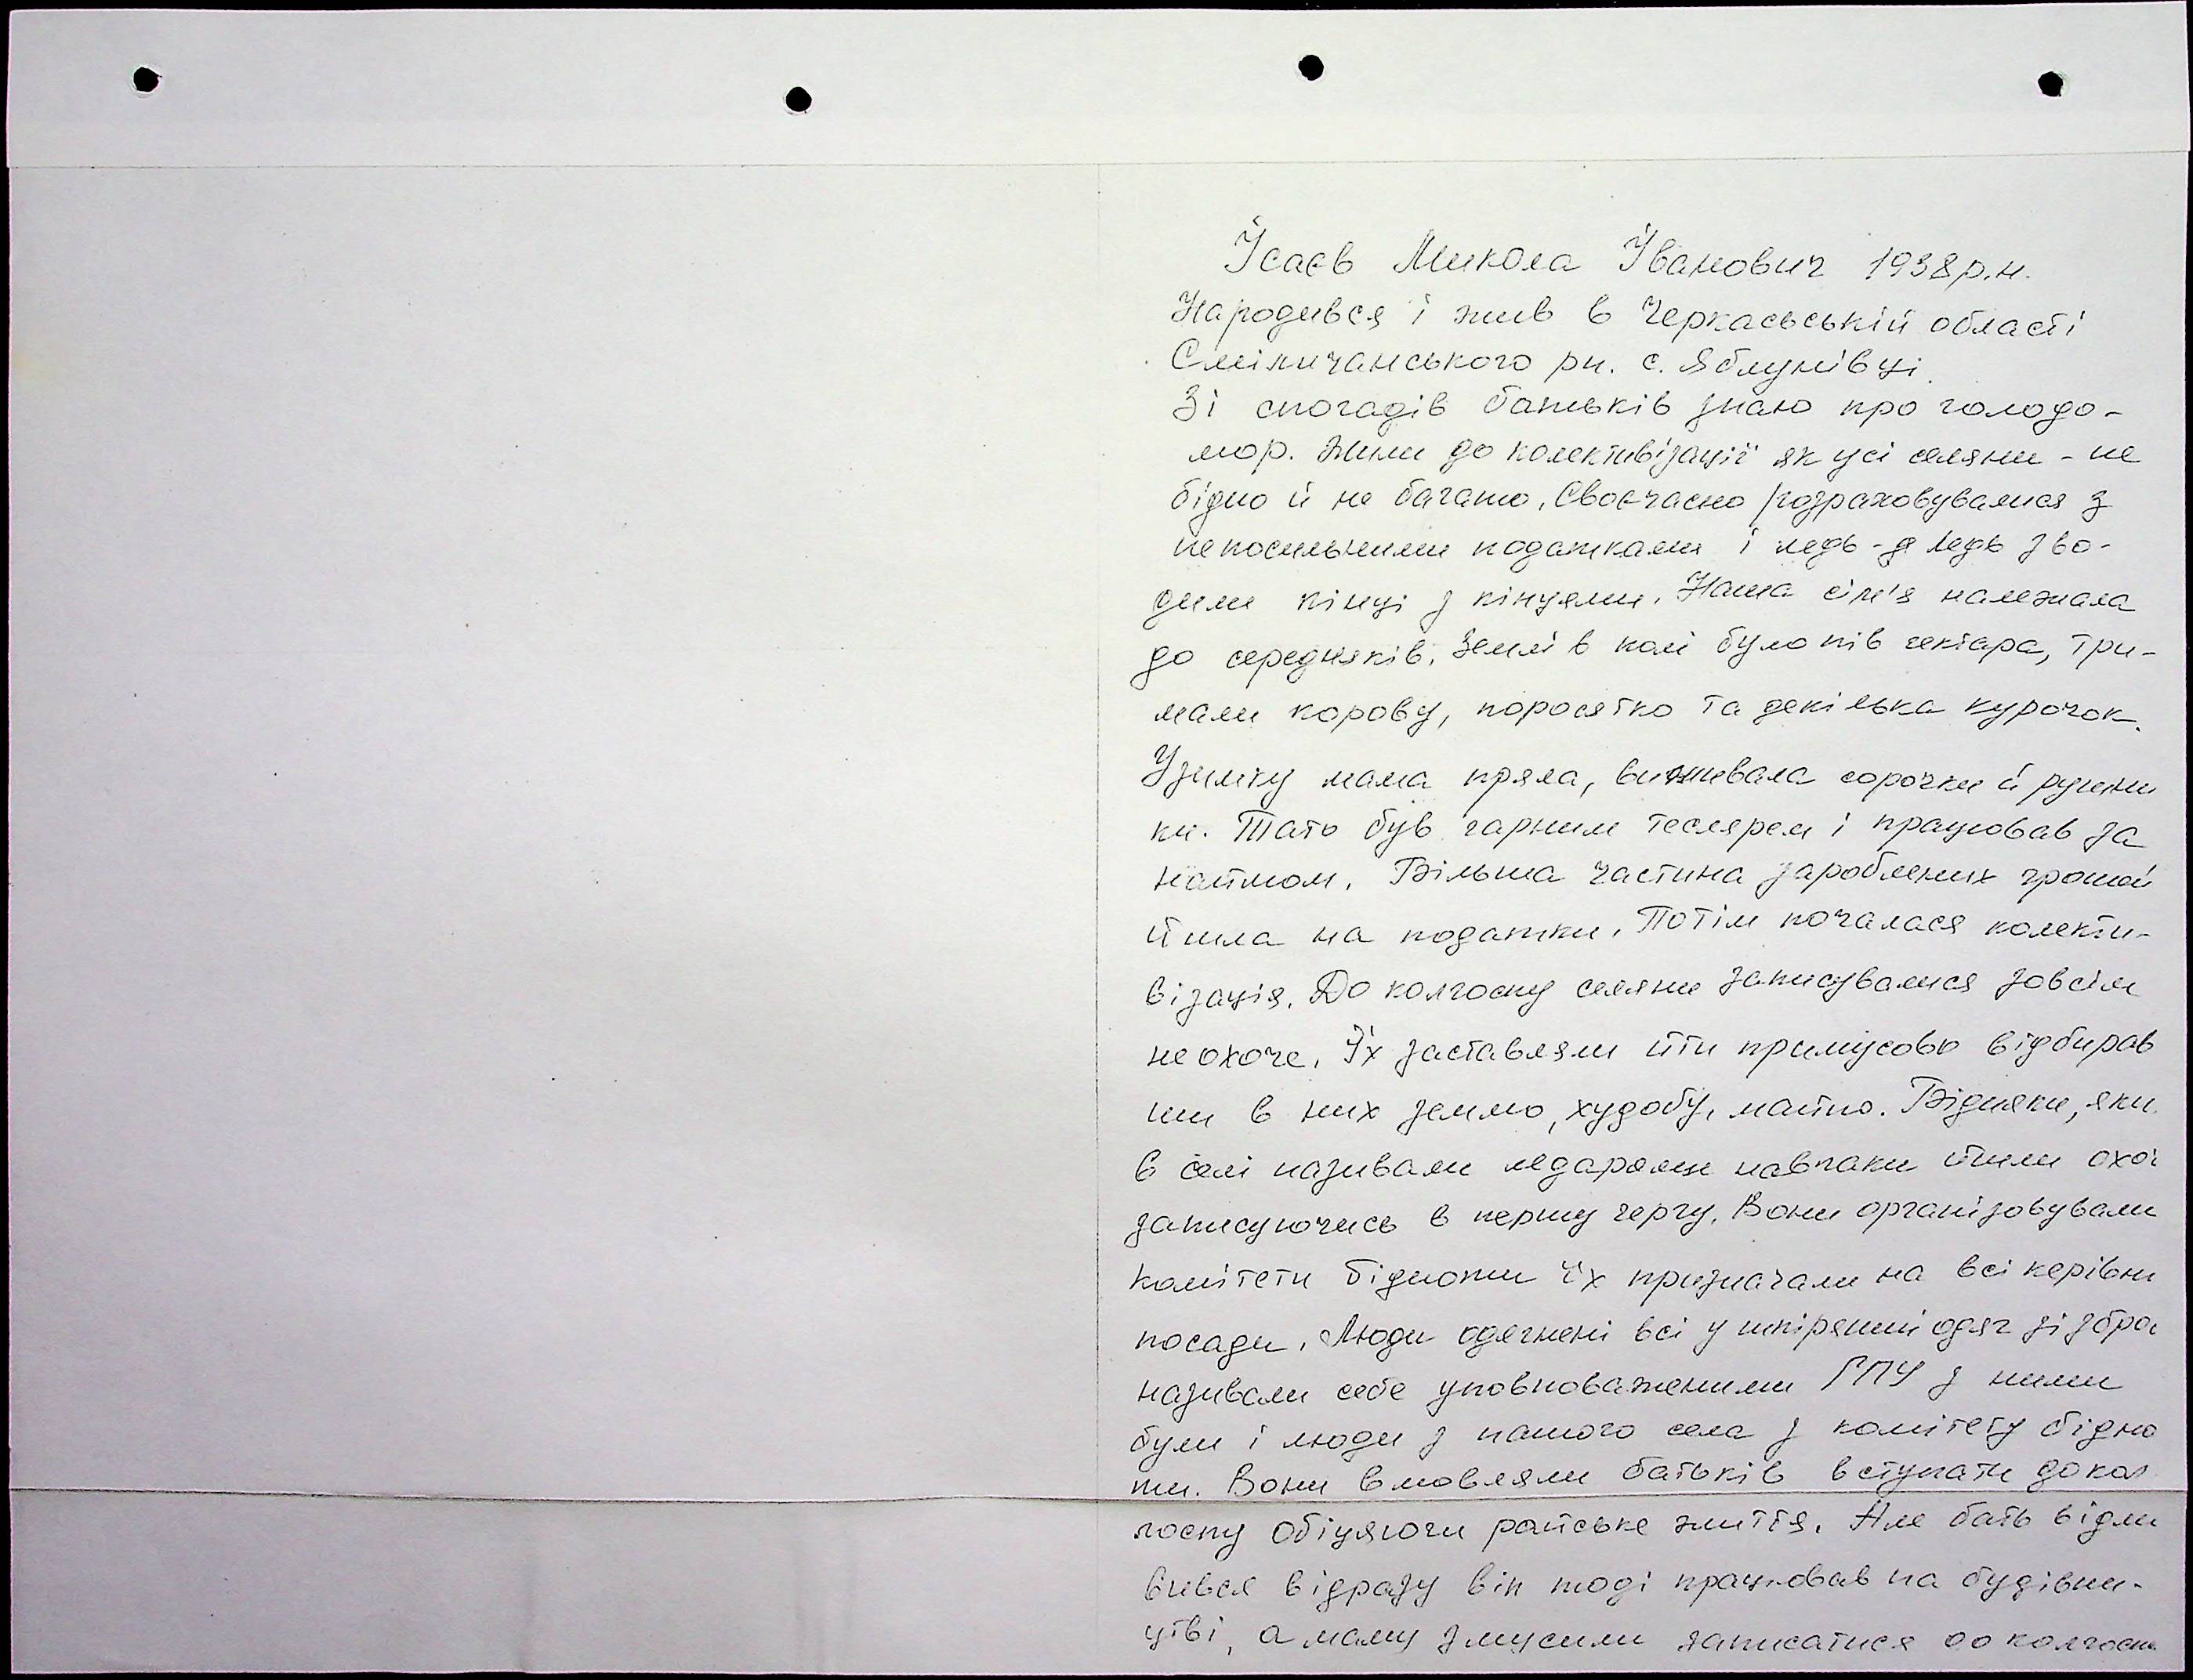 Ісаєв Микола Іванович 1938 р.н.
Народився і жив в Черкасьській області
Смілинчанського рн. с. Яблунівці
Зі спогадів батьків знаю про голодо-
мор. Жили до колективізації як усі селяни - не
бідно й не багато. Своєчасно розраховувалися з
непосильними податками і ледь-ледь зво-
дили кінці з кінцями. Наша сім'я належала
до середняків. Землі в полі було пів гектара, три-
мали корову, поросятко та декілька курочок.
Узимку мама пряла, вишивала сорочки й рушни
ки. Тато був гарним теслярем і працював за
наймом. Більша частина зароблених грошей
йшла на податки. Потім почалася колекти-
візація. До колгоспу селяни записувалися зовсім
не охоче. Їх заставляли йти примусово відбирав
ши в них землю, худобу, майно. Бідняки, яки
в селі називали ледарями навпаки йшли охоч
записуючись в першу чергу. Вони організовували
комітети бідноти їх призначали на всі керівни
посади. Люди одягнені всі у шкіряний одяг зі збро
називали себе уповноваженими ГПУ з ними
були і люди з нашого села з комітету бідно
ти. Вони вмовляли батьків вступати до кол
госпу обіцяючи райське життя. Але бать відмо
вився відразу він тоді працював на будівни-
цтві, а маму змусили записатися до колгосп